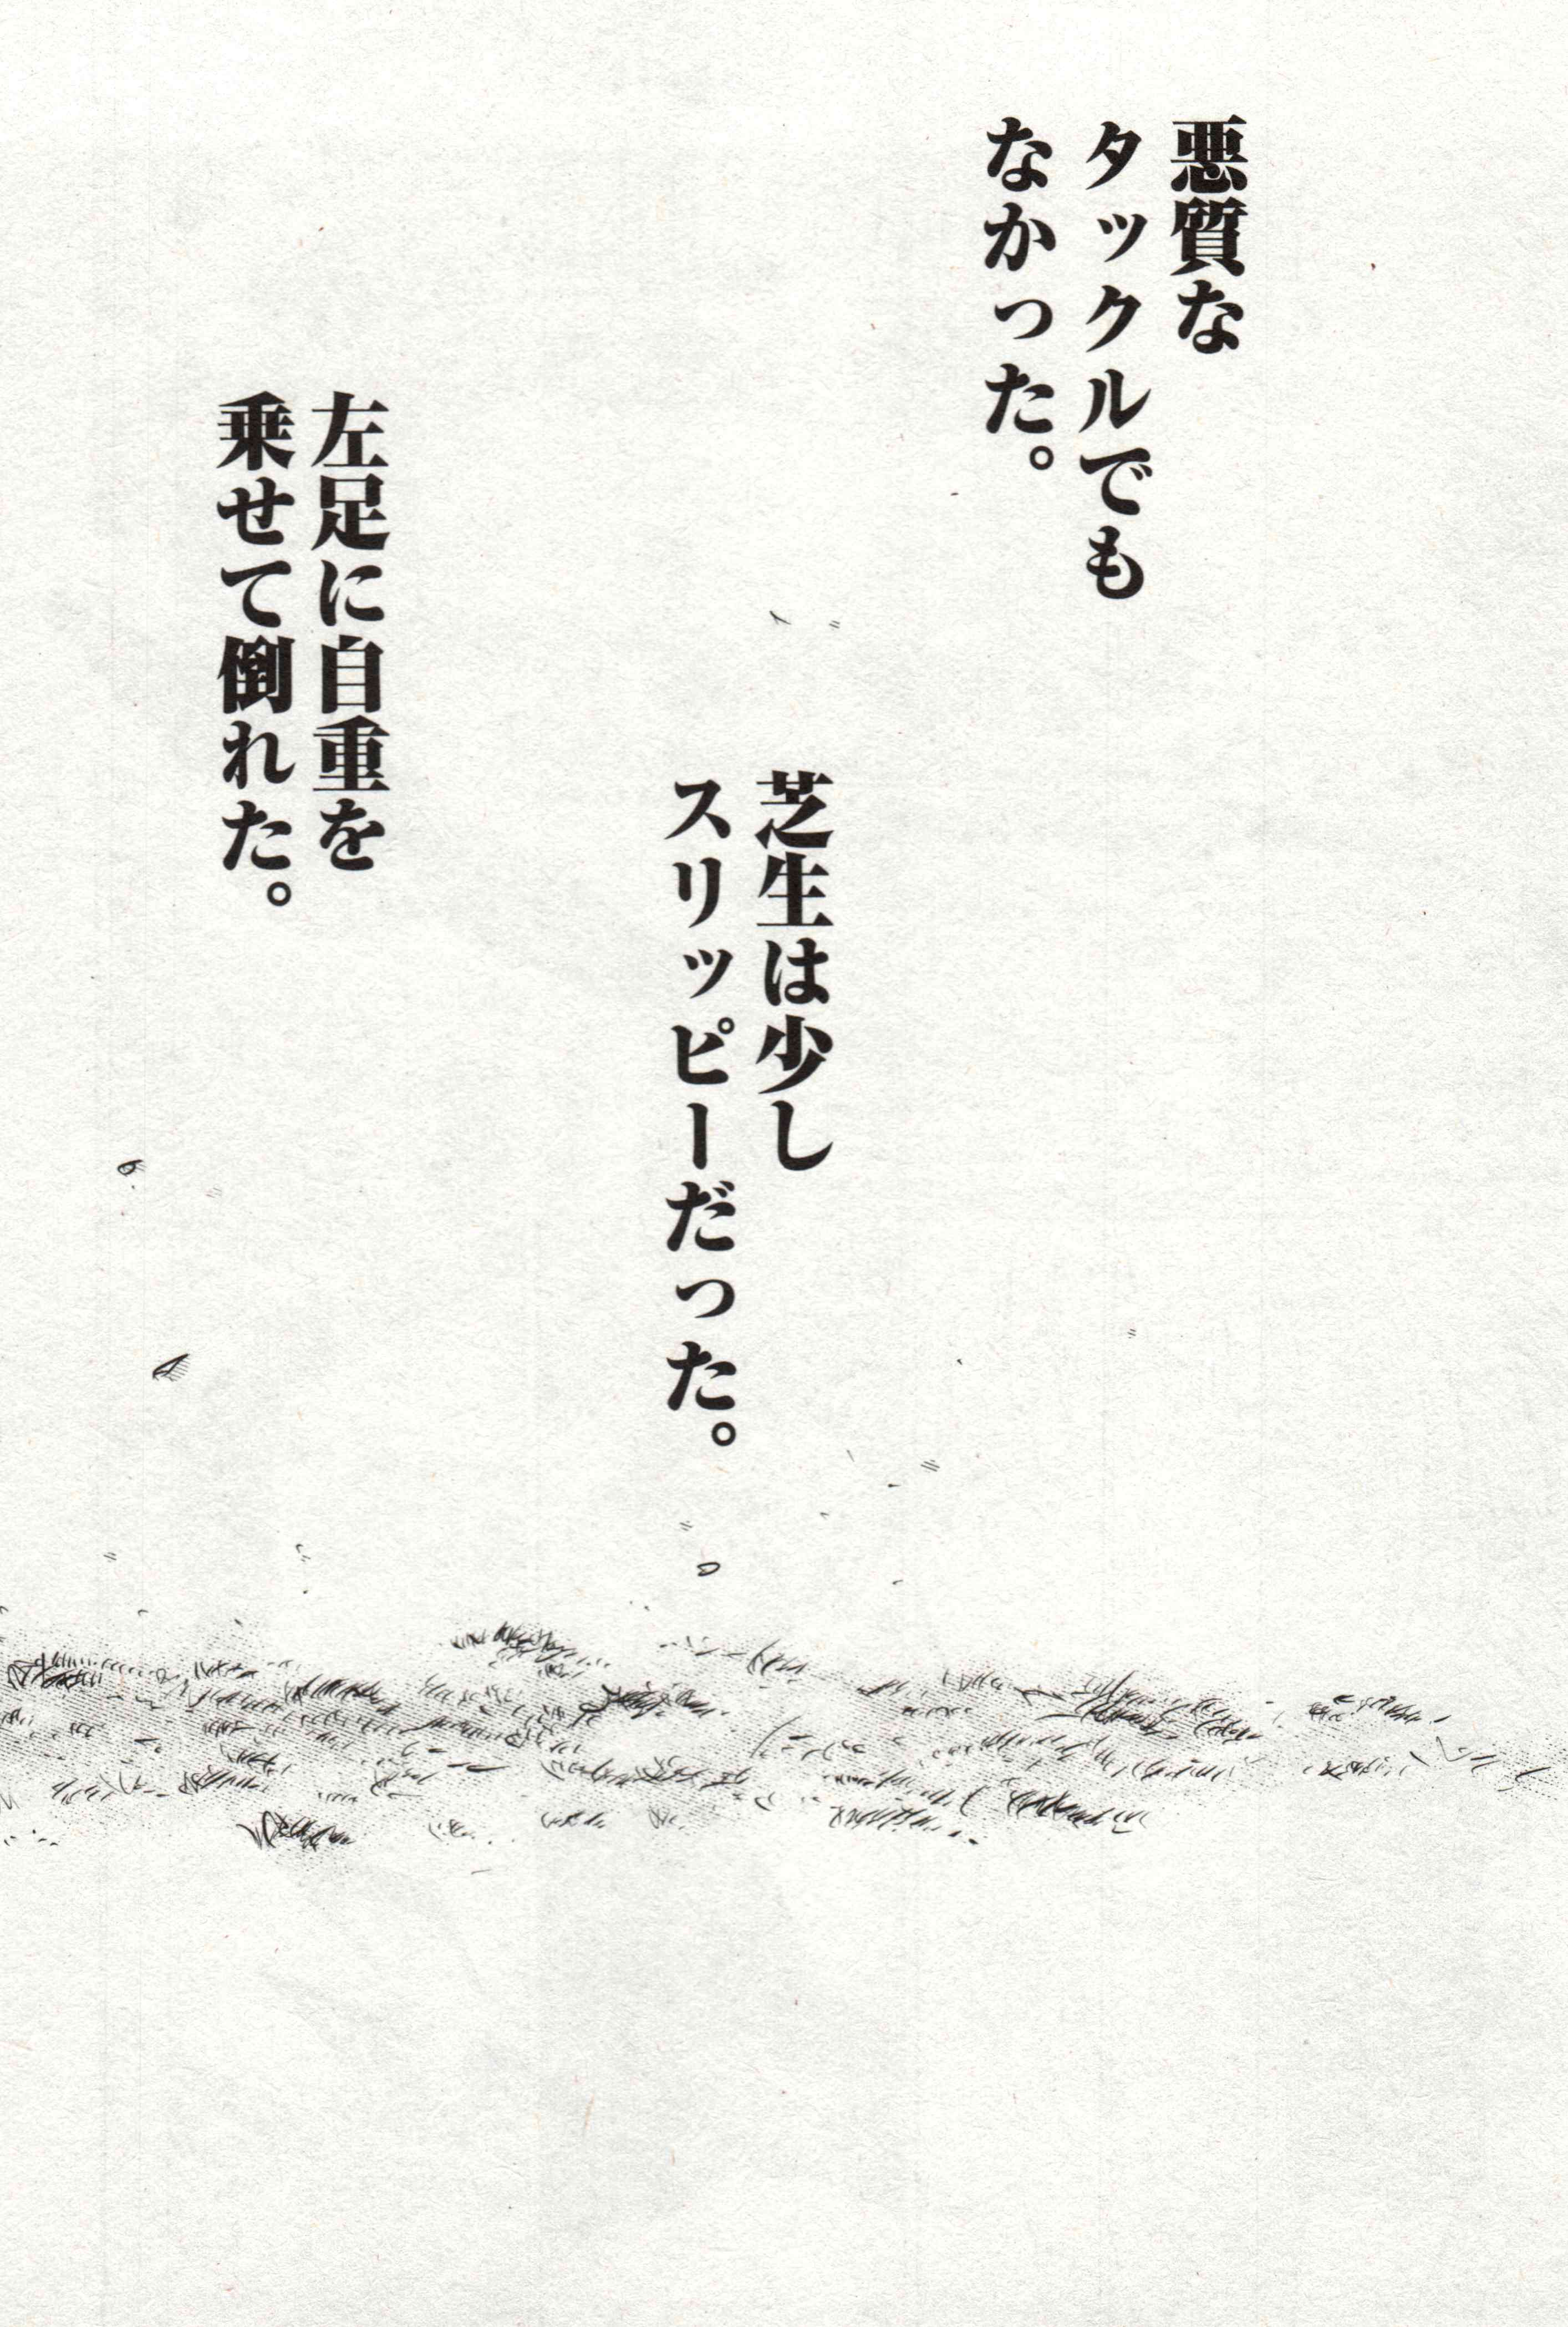 悪質な
タックルでも
なかった。
芝生は少し
スリッピーだった。
左足に自重を
乗せて倒れた。